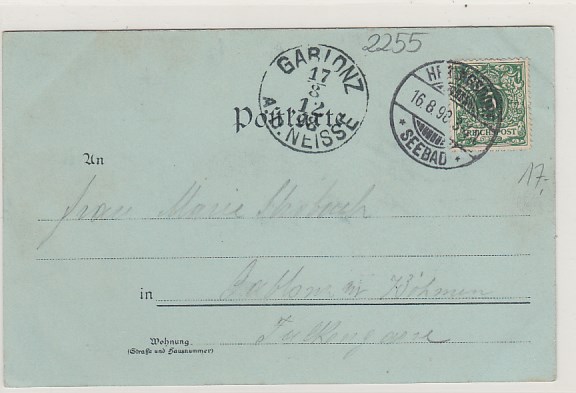 2255
GABLONZ
17
8
12
98
A.D. NEISSE
16.8.98
* SEEBAD *
REICHSPOST
Postkarte
17.-
An
Frau Marie
in Gablonz in Böhmen
Wohnung.
(Straße und Hausnummer)